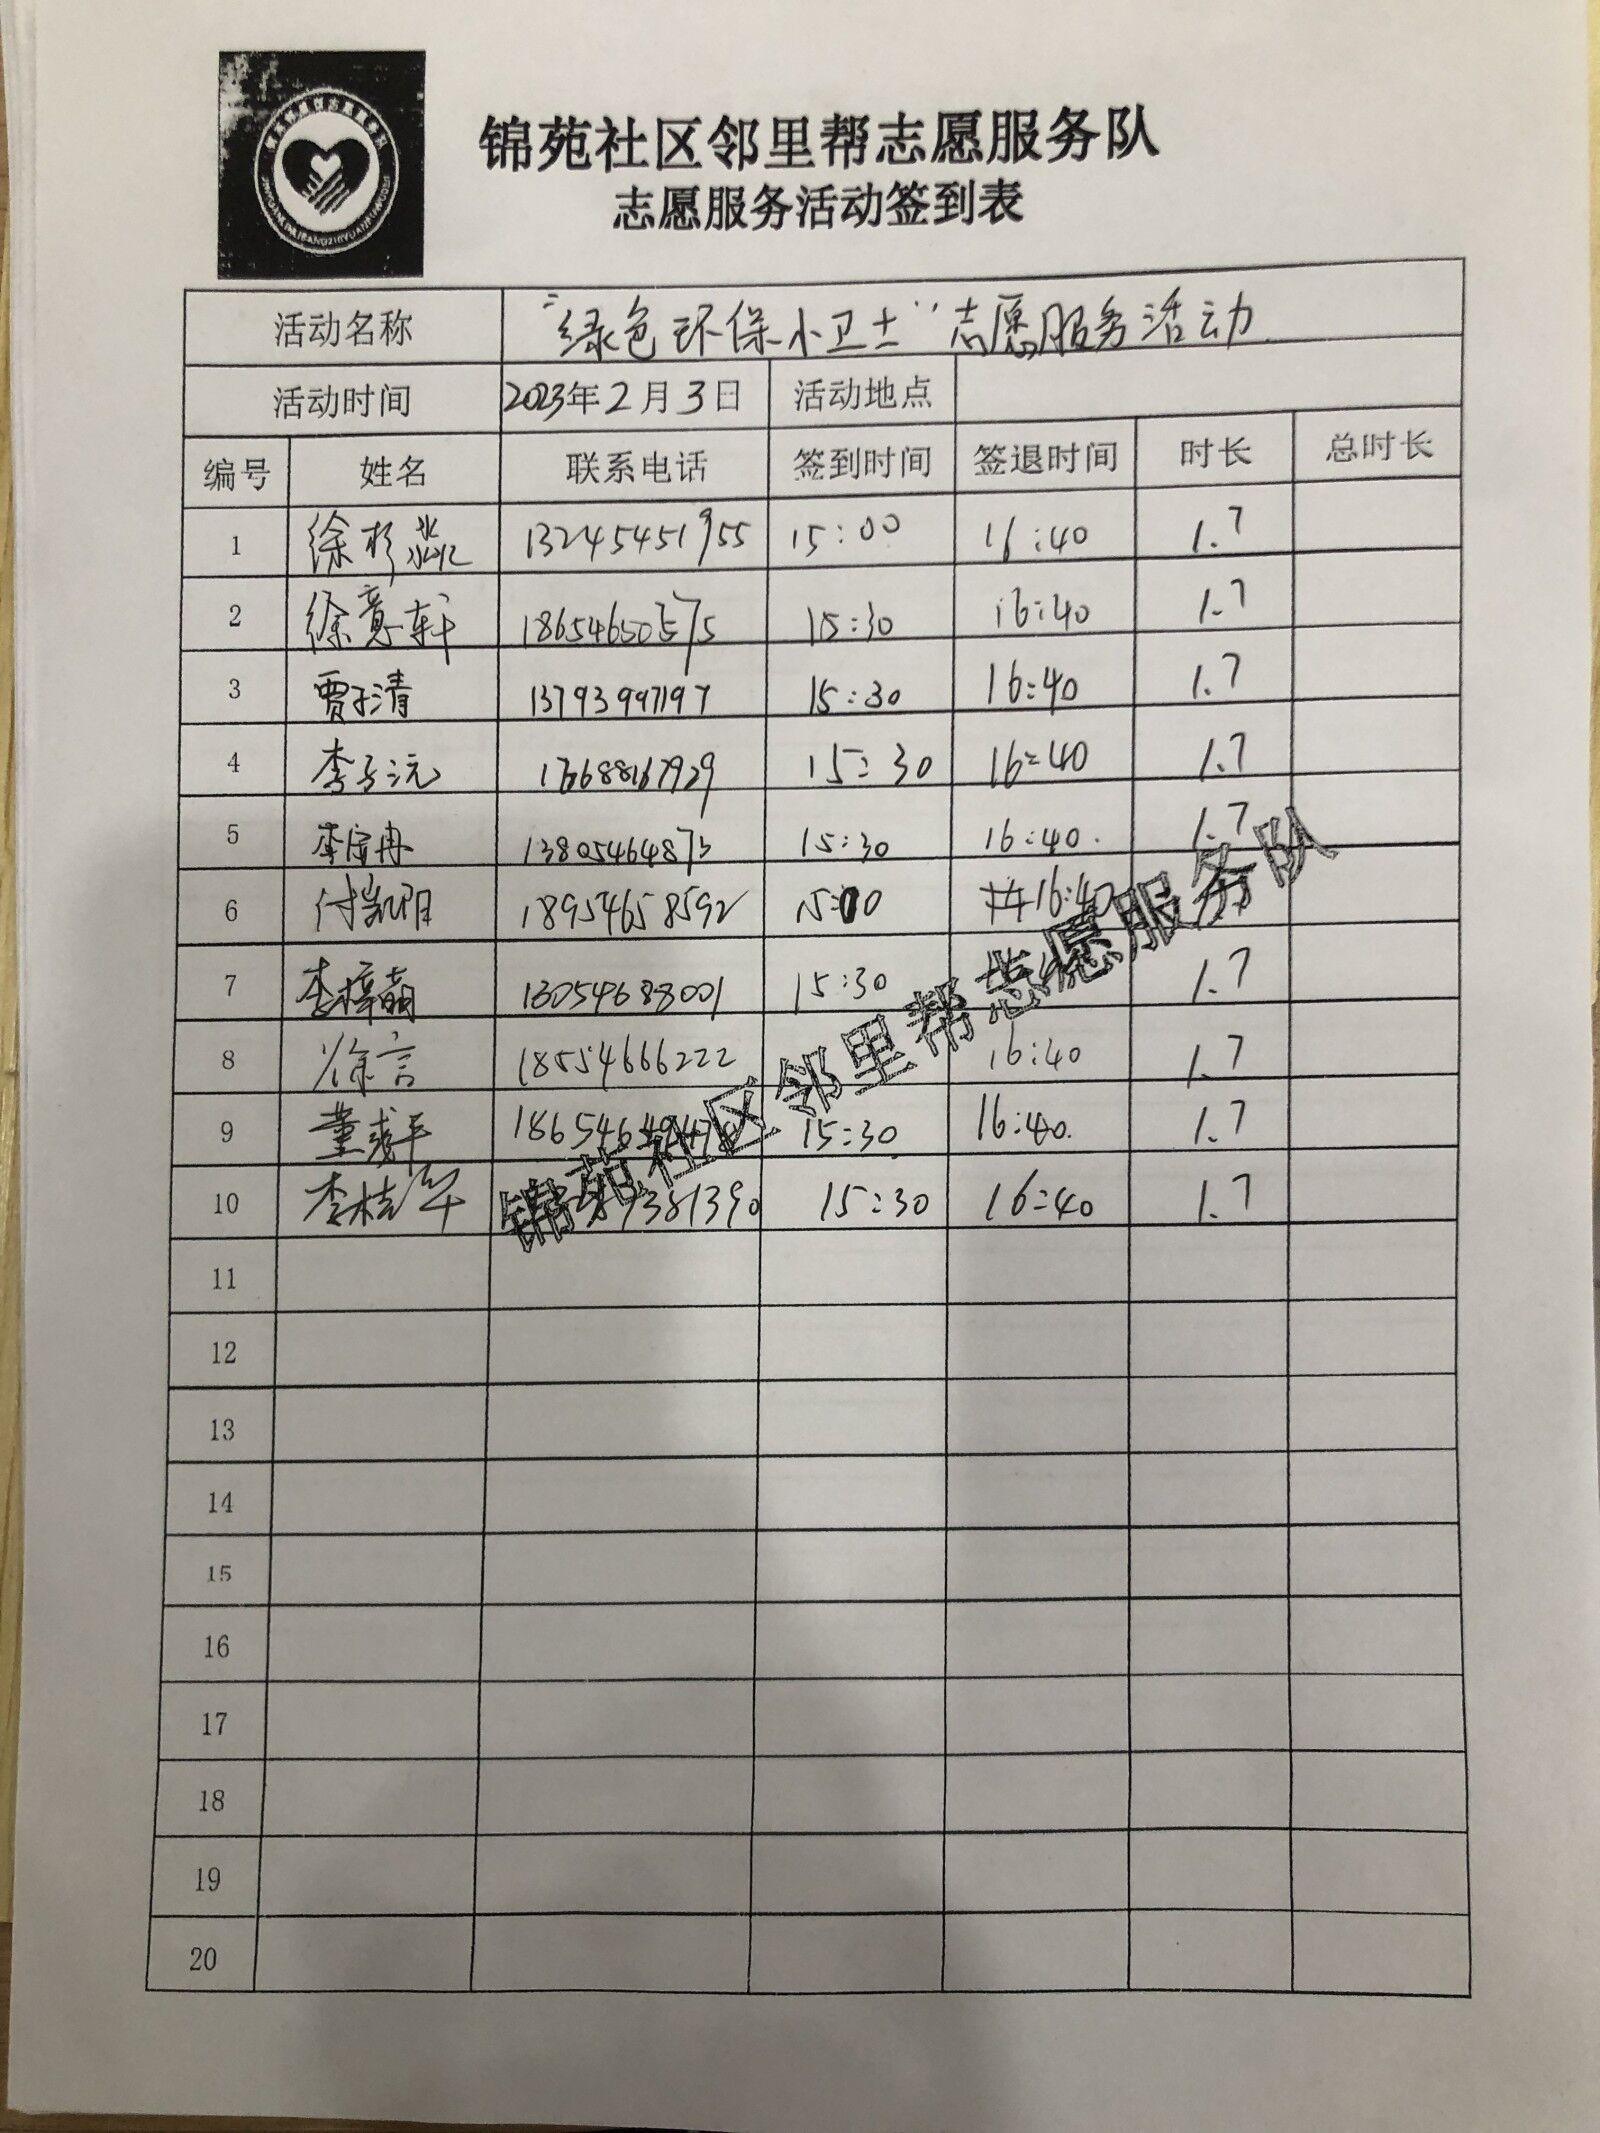 锦苑社区邻里帮志愿服务队
志愿服务活动签到表
活动名称 "绿色环保小卫士"志愿服务活动
活动时间 2023年2月3日 活动地点
编号 姓名 联系电话 签到时间 签退时间 时长 总时长
1 徐杉淼 13245451955 15:00 16:40 1.7
2 徐意轩 18654650575 15:30 16:40 1.7
3 贾子清 13793997197 15:30 16:40 1.7
4 李子沅 176688167929 15:30 16:40 1.7
5 李宜冉 13805464873 15:30 16:40. 1.7
6 付凯明 18954658592 15:00 16:40
7 李梓萌 13054688001 15:30 1.7
8 徐言 18554666222 16:40 1.7
9 董彧平 15:30 16:40. 1.7
10 李桂华 15:30 16:40 1.7
锦苑社区邻里帮志愿服务队
11
12
13
14
15
16
17
18
19
20